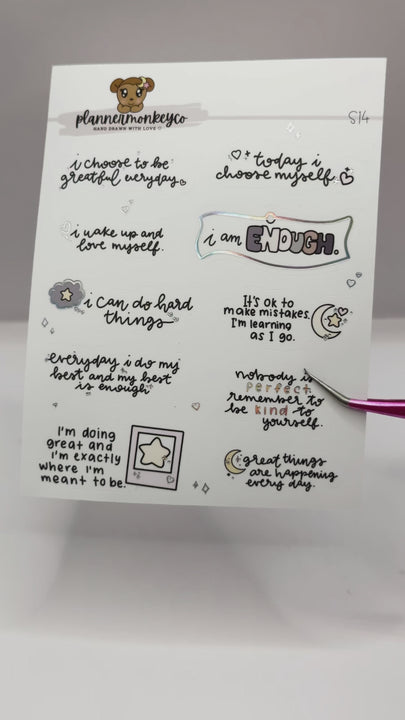 plannermonkeyco
HAND DRAWN WITH LOVE
S14
i choose to be
greatful everyday
today i
choose myself
i wake up and
love myself.
i am ENOUGH.
i can do hard
things
It's ok to
make mistakes.
I'm learning
as I go.
everyday i do my
best and my best
is enough.
nobody is
perfect
remember to
be kind to
yourself.
I'm doing
great and
i'm exactly
where I'm
meant to be.
great things
are happening
every day.